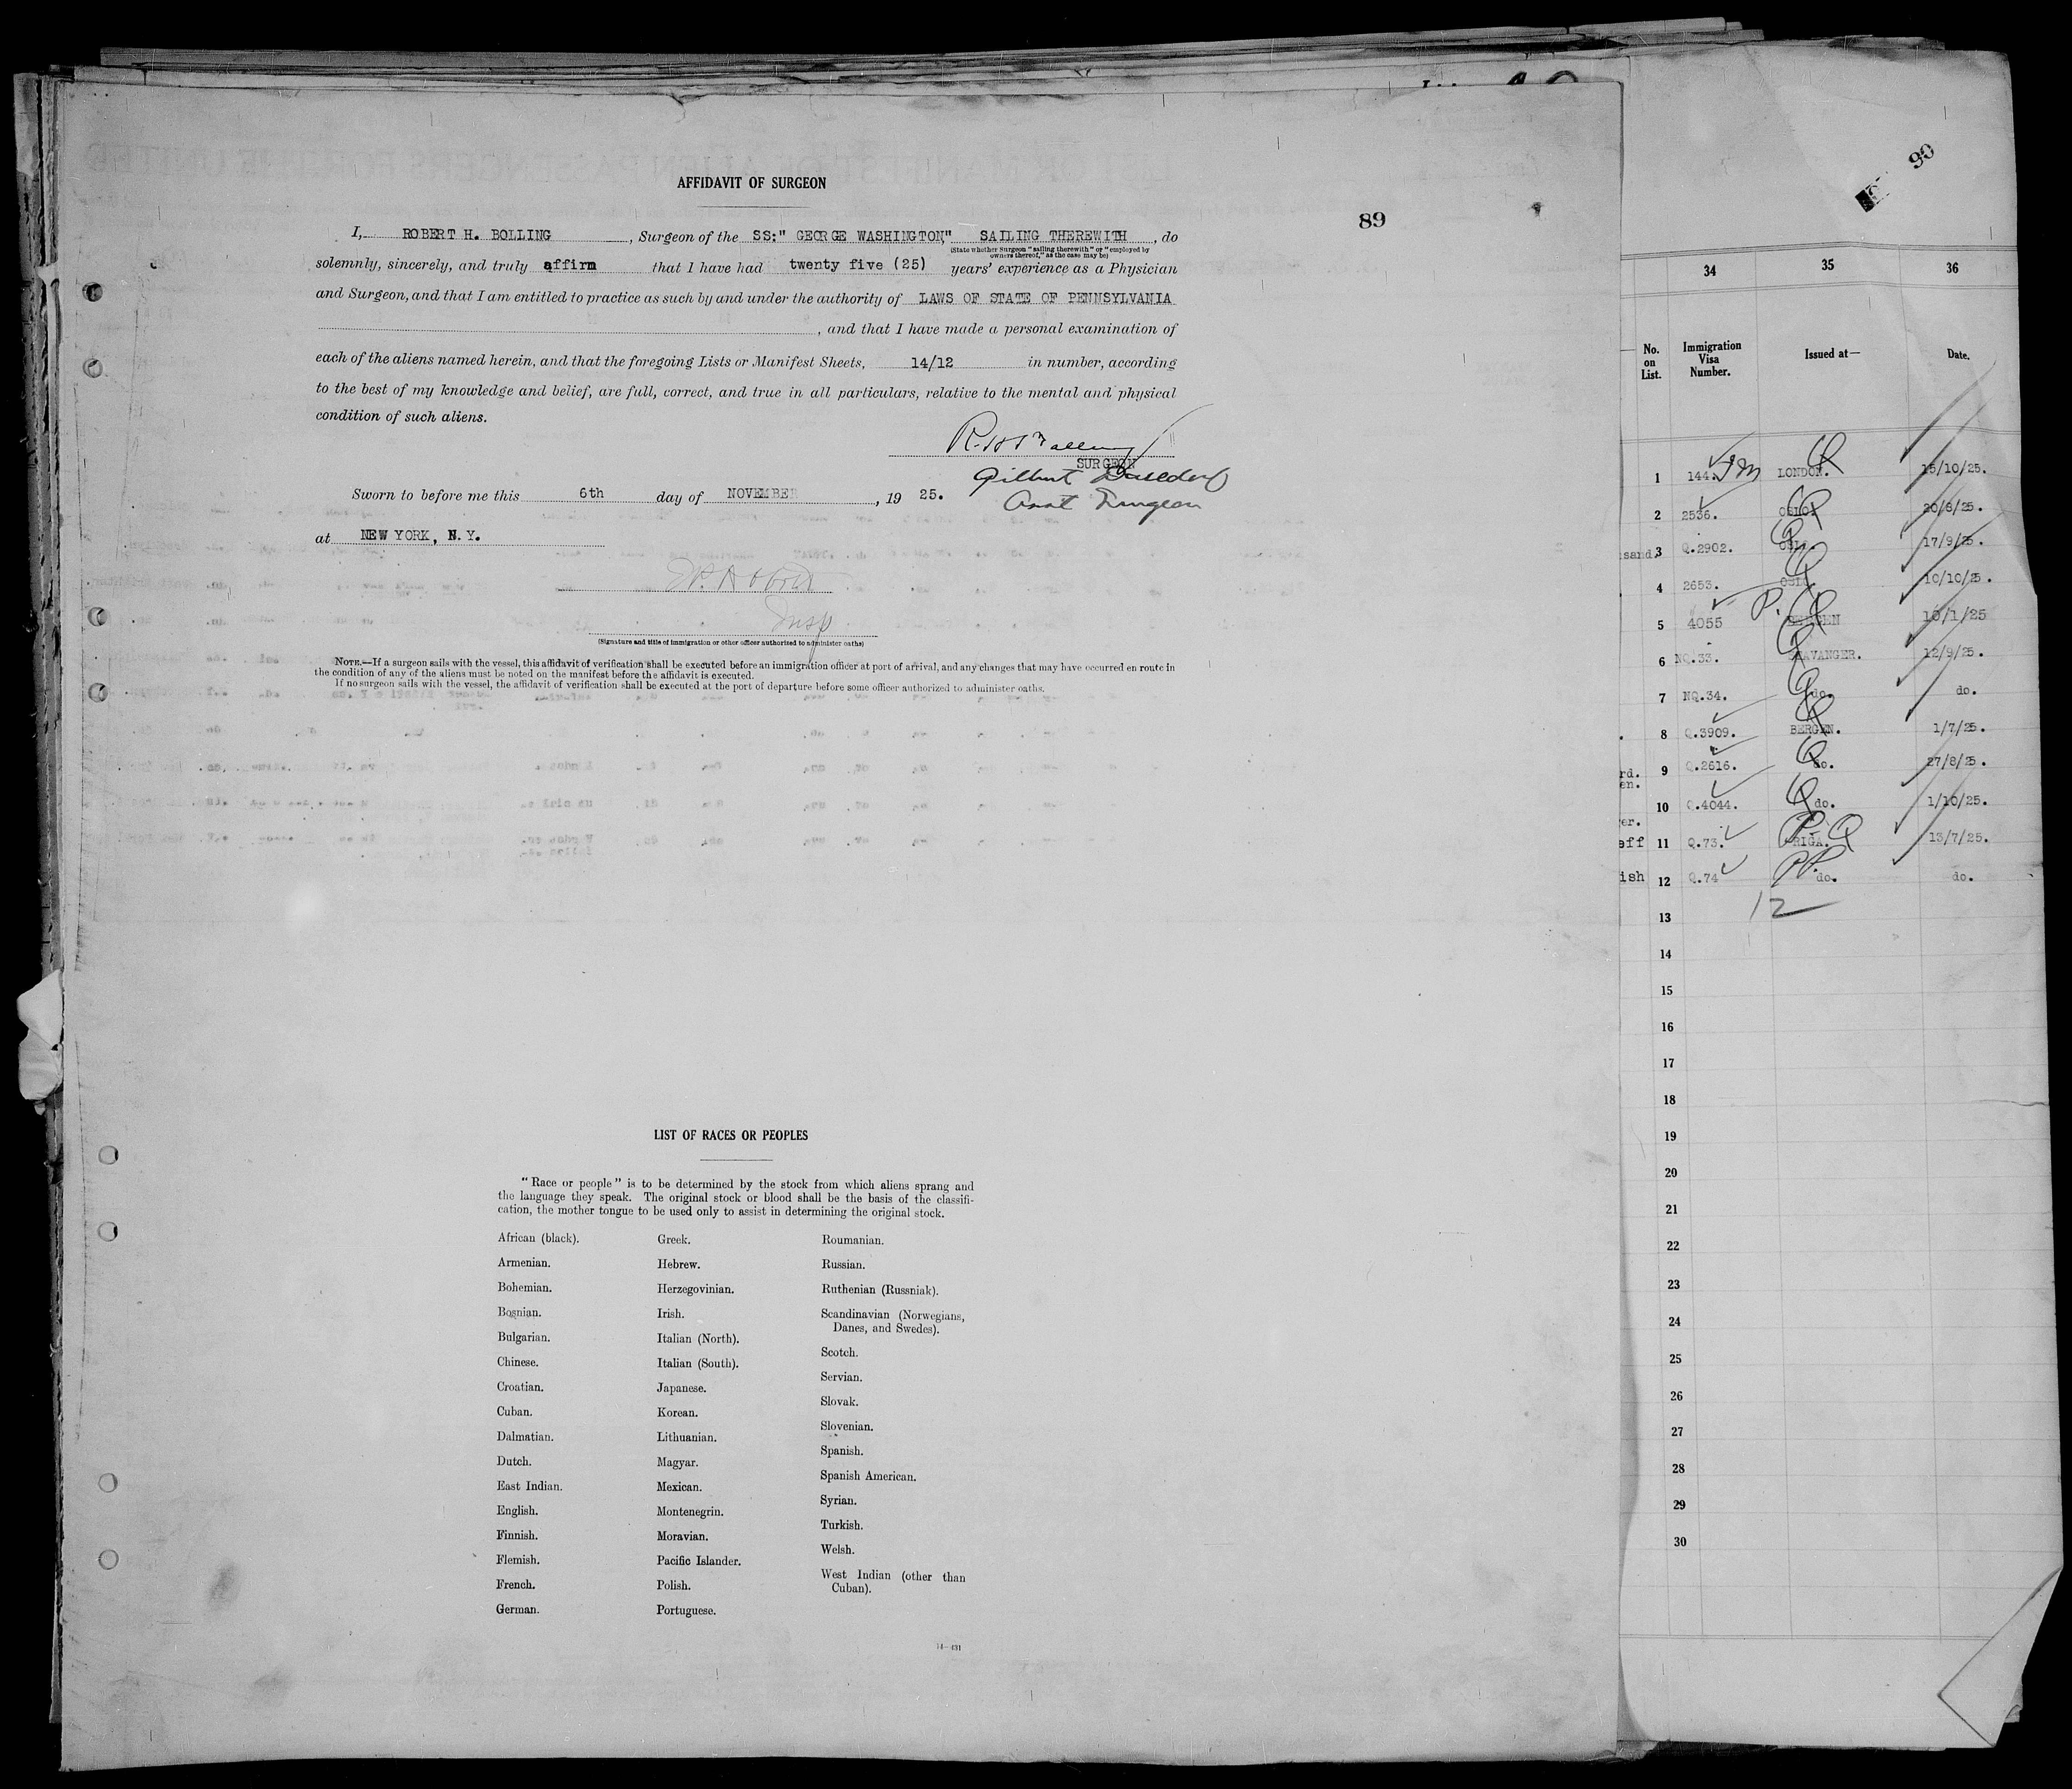 AFFIDAVIT OF SURGEON
89
I, ROBERT H. BOLLING, Surgeon of the SS:" GEORGE WASHINGTON," SAILING THEREWITH, do
(State whether Surgeon "sailing therewith" or "employed by
owners thereof," as the case may be)
solemnly, sincerely, and truly affirm that I have had twenty five (25) years' experience as a Physician
and Surgeon, and that I am entitled to practice as such by and under the authority of LAWS OF STATE OF PENNSYLVANIA
, and that I have made a personal examination of
each of the aliens named herein, and that the foregoing Lists or Manifest Sheets, 14/12 in number, according
to the best of my knowledge and belief, are full, correct, and true in all particulars, relative to the mental and physical
condition of such aliens.
SURGEON
Gilbert
Asst Surgeon
Sworn to before me this 6th day of NOVEMBER, 19 25.
at NEW YORK, N.Y.
Insp
(Signature and title of immigration or other officer authorized to administer oaths)
NOTE.—If a surgeon sails with the vessel, this affidavit of verification shall be executed before an immigration officer at port of arrival, and any changes that may have occurred en route in
the condition of any of the aliens must be noted on the manifest before the affidavit is executed.
If no surgeon sails with the vessel, the affidavit of verification shall be executed at the port of departure before some officer authorized to administer oaths.
LIST OF RACES OR PEOPLES
"Race or people" is to be determined by the stock from which aliens sprang and
the language they speak. The original stock or blood shall be the basis of the classifi-
cation, the mother tongue to be used only to assist in determining the original stock.
African (black).
Armenian.
Bohemian.
Bosnian.
Bulgarian.
Chinese.
Croatian.
Cuban.
Dalmatian.
Dutch.
East Indian.
English.
Finnish.
Flemish.
French.
German.
Greek.
Hebrew.
Herzegovinian.
Irish.
Italian (North).
Italian (South).
Japanese.
Korean.
Lithuanian.
Magyar.
Mexican.
Montenegrin.
Moravian.
Pacific Islander.
Polish.
Portuguese.
Roumanian.
Russian.
Ruthenian (Russniak).
Scandinavian (Norwegians,
Danes, and Swedes).
Scotch.
Servian.
Slovak.
Slovenian.
Spanish.
Spanish American.
Syrian.
Turkish.
Welsh.
West Indian (other than
Cuban).
14—431
90
34 35 36
No. on List. Immigration Visa Number. Issued at— Date.
1 144. LONDON. Q 15/10/25.
2 2536. OSLO. Q 20/8/25.
sand. 3 Q.2902. OSLO. Q 17/9/25.
4 2653. OSLO Q 10/10/25.
5 4055 P. Q BERGEN 10/1/25
6 NQ.33. STAVANGER. Q 12/9/25.
7 NQ.34. do. Q do.
8 Q.3909. BERGEN. Q 1/7/25.
rd. 9 Q.2616. do. Q 27/8/25.
en.
10 Q.4044. do. Q 1/10/25.
er.
eff 11 Q.73. RIGA. P. Q 13/7/25.
ish 12 Q.74 do. do.
12
13
14
15
16
17
18
19
20
21
22
23
24
25
26
27
28
29
30